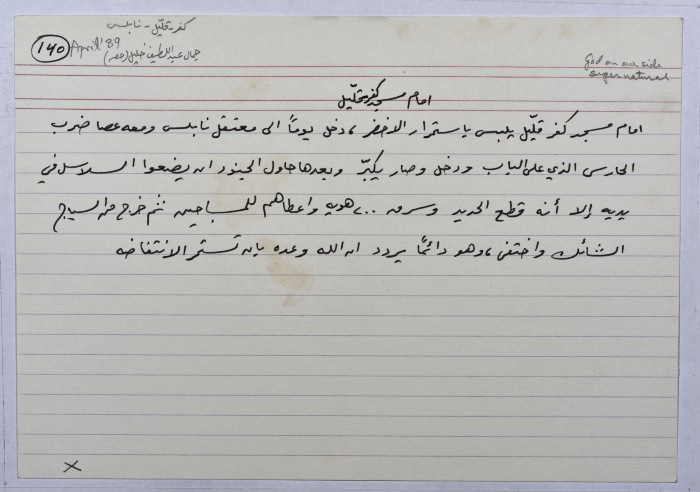 كفر قليل - نابلس
140 April '89
جمال عبد اللطيف خليل
God on our side
supernatural
امام مسجد كفر قليّل
امام مسجد كفر قليّل يلبس باستمرار الاخضر، دخل يوماً الى معتقل نابلس ومعه عصا ضرب
الحارس الذي على الباب ودخل وصار يكبّر وبعدها حاول الجنود ان يضعوا السلاسل في
يديه إلا أنه قطع الحديد وسرق ٧٠٠ هوية واعطاهم للمساجين ثم خرج من السياج
الشائك واختفى، وهو دائماً يردد ان الله وعده بان تستمر الانتفاضه
X